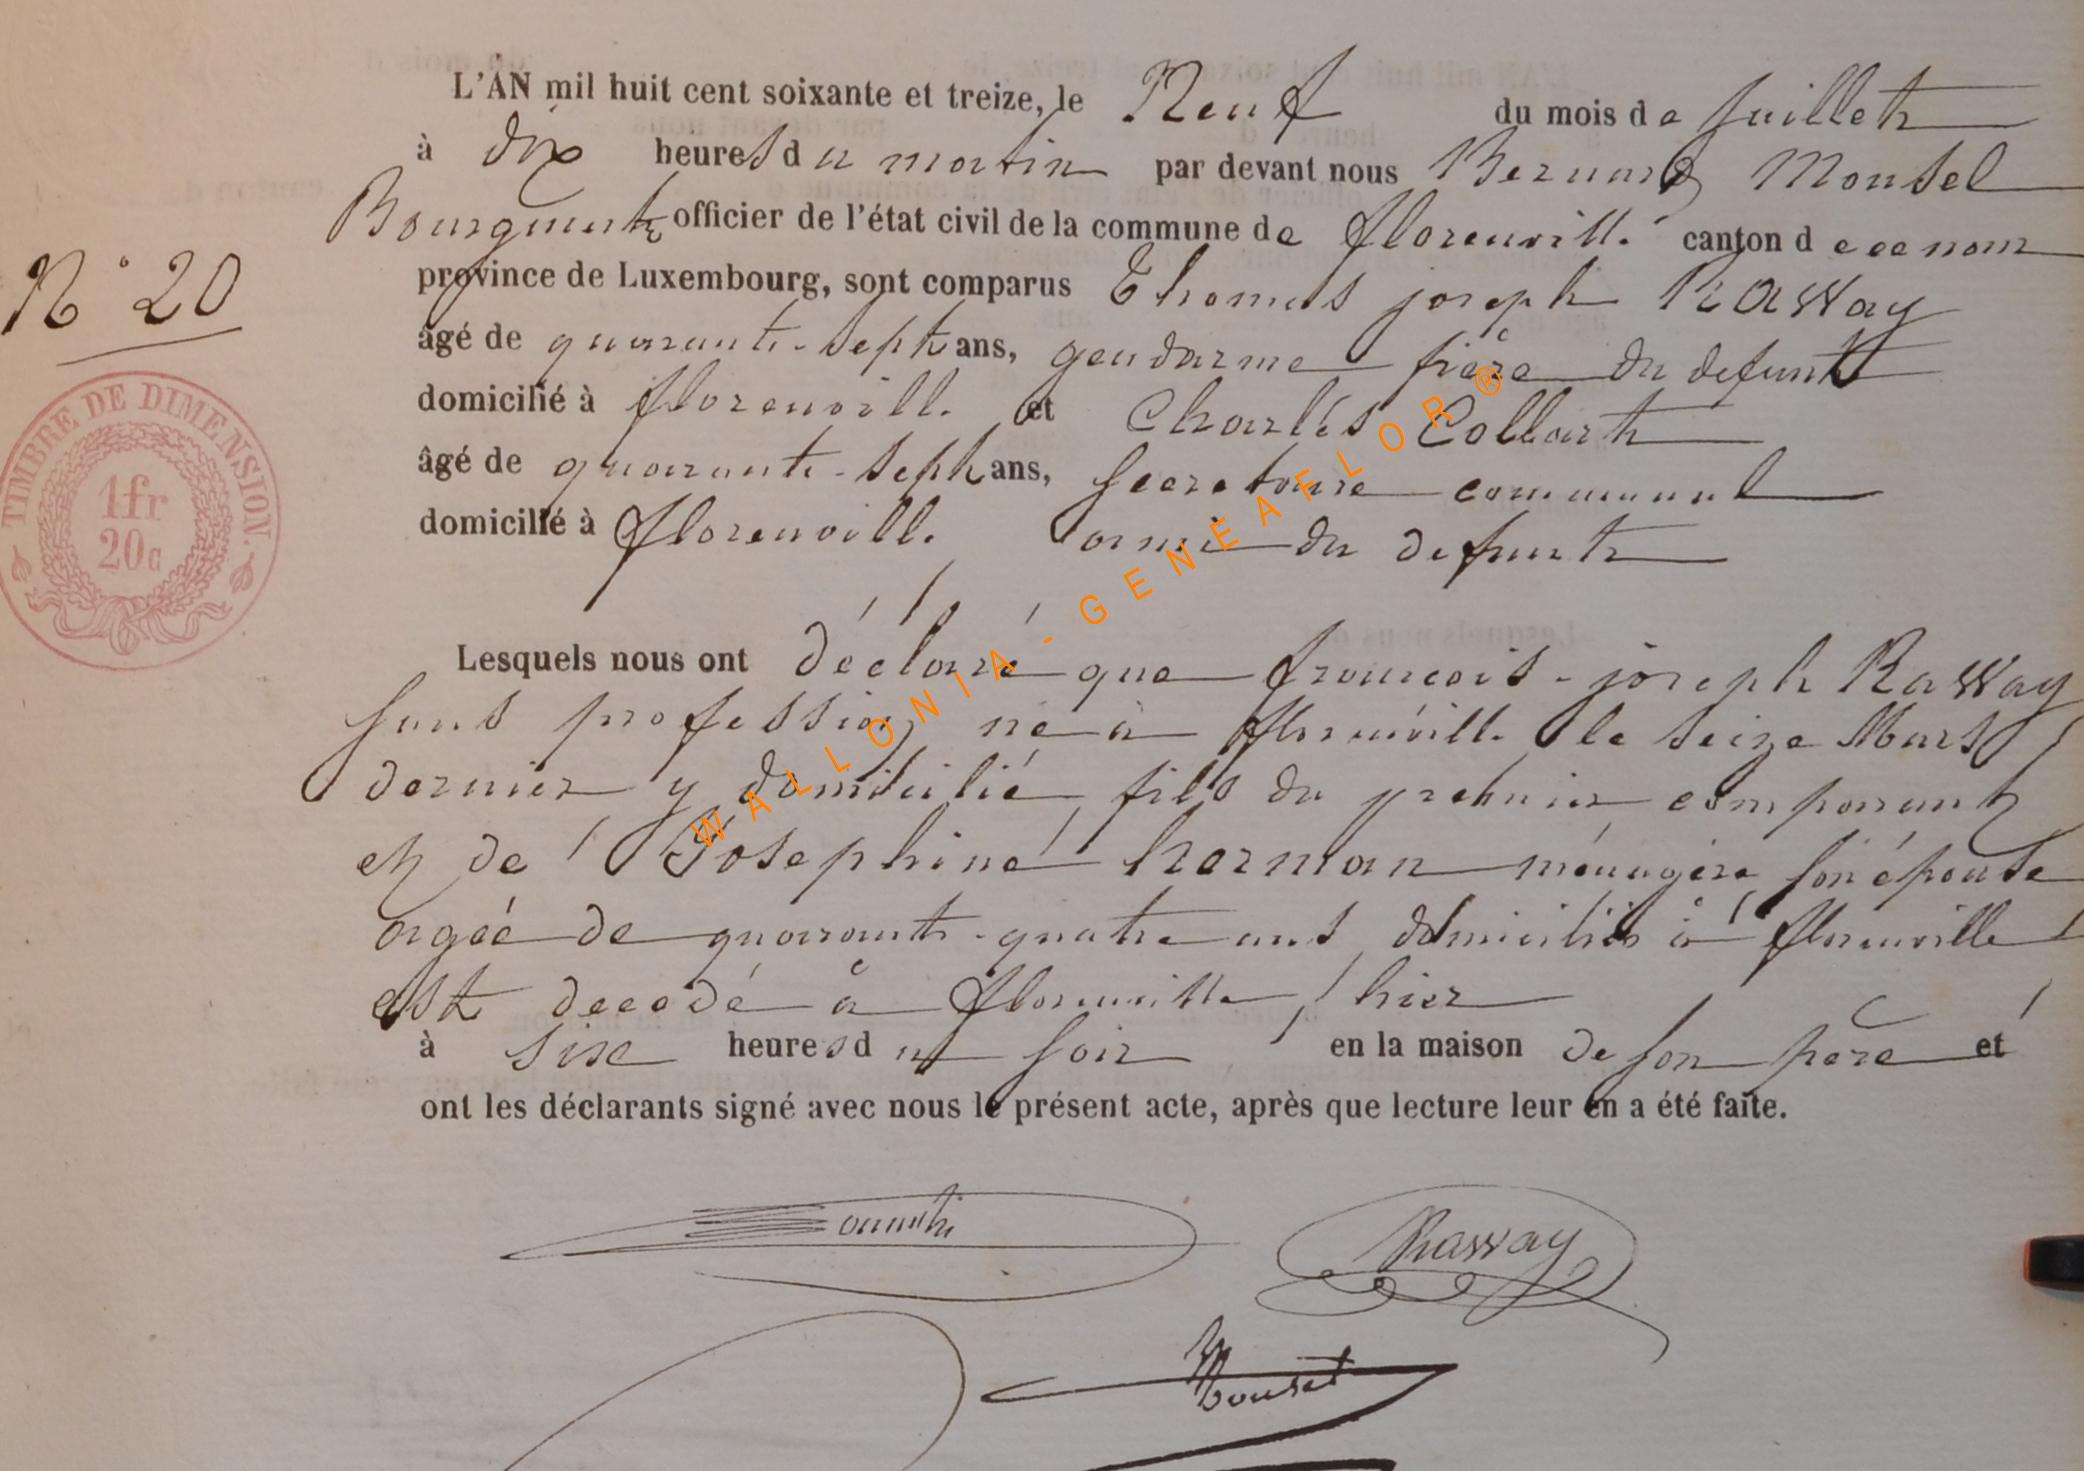 L'AN mil huit cent soixante et treize, le Neuf du mois de juillet
à dix heures du matin par devant nous Bernard Mousel
Bourgmestre officier de l'état civil de la commune de florenville canton de ce nom
N° 20
province de Luxembourg, sont comparus Thomas joseph RAWAY
âgé de quarante-sept ans, gendarme père du defunt
domicilié à florenville et Charles Collart
âgé de quarante-sept ans, secretaire communal
domicilié à florenville ami du defunt
TIMBRE DE DIMENSION
1fr
20c
Lesquels nous ont déclaré que francois-joseph Raway
sans profession né à florenville le seize Mars
dernier y domicilié, fils du premier comparant
et de Josephine herman ménagère, son épouse
agéé de quarante-quatre ans, domiciliés à florenville
est decedé à florenville, hier
à six heures du soir en la maison de son père et
ont les déclarants signé avec nous le présent acte, après que lecture leur en a été faite.
Raway
Mousel
WALLONIA-GENEAFLOR®